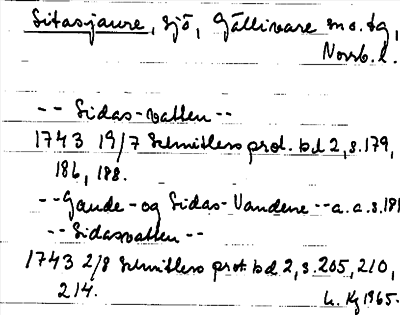 Sitasjaure, sjö, Gällivare sn o. tg,
Norrb. l.
-- Sidas-vatten --
1743 19/7 Schnitlers prot. bd 2, s. 179,
186, 188.
-- Gaude- og Sidas-Vandene -- a.a. s. 181
-- Sidasvatten --
1743 2/8 Schnitlers prot. bd 2, s. 205, 210,
214.
1965.